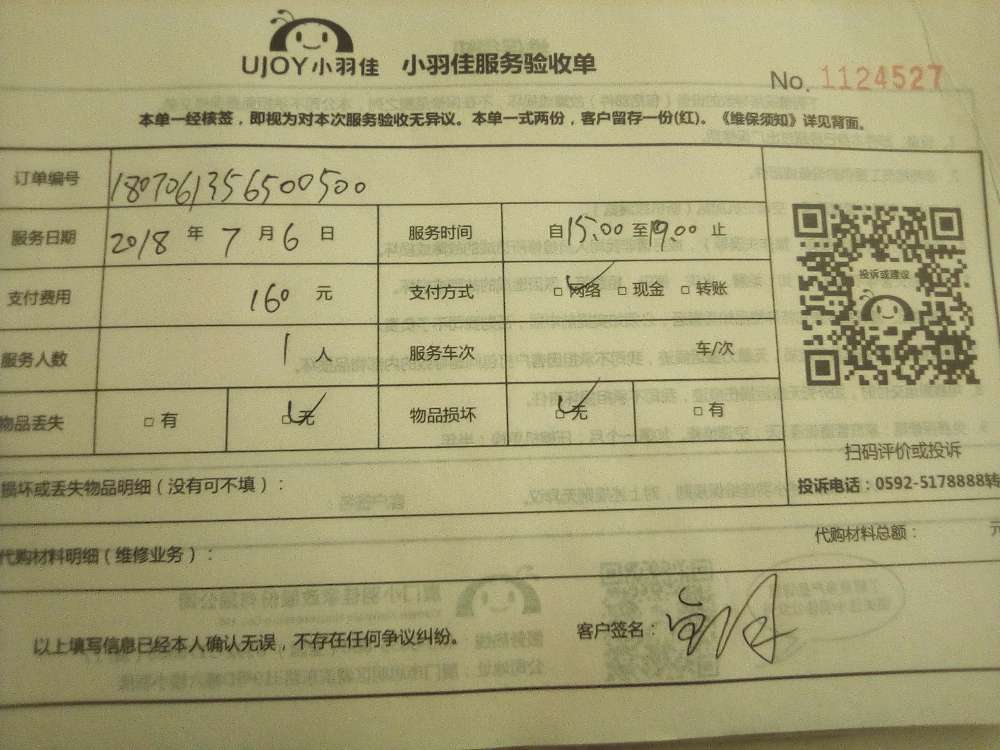 UJOY小羽佳 小羽佳服务验收单
No. 1124527
本单一经核签，即视为对本次服务验收无异议。本单一式两份，客户留存一份(红)。《维保须知》详见背面。
订单编号 1807061356500500
服务日期 2018 年 7 月 6 日 服务时间 自 15:00 至 19:00 止
支付费用 160 元 支付方式 □网络 □现金 □转账
服务人数 1 人 服务车次 车/次
物品丢失 □有 □无 物品损坏 □无 □有
投诉或建议
扫码评价或投诉
投诉电话：0592-5178888转
损坏或丢失物品明细（没有可不填）：
代购材料明细（维修业务）： 代购材料总额： 元
以上填写信息已经本人确认无误，不存在任何争议纠纷。 客户签名：